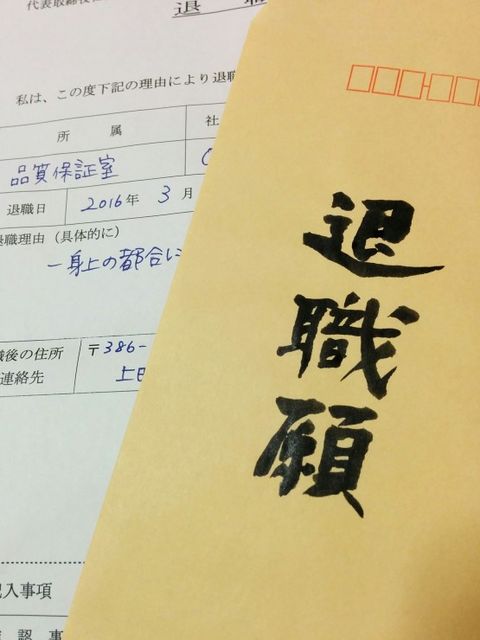 代表取締役社
退 職
私は、この度下記の理由により退職
所 属 社
品質保証室
退職日 2016年 3月
退職理由（具体的に）
一身上の都合に
職後の住所 〒386-
連絡先 上田
記入事項
認 事
退職願